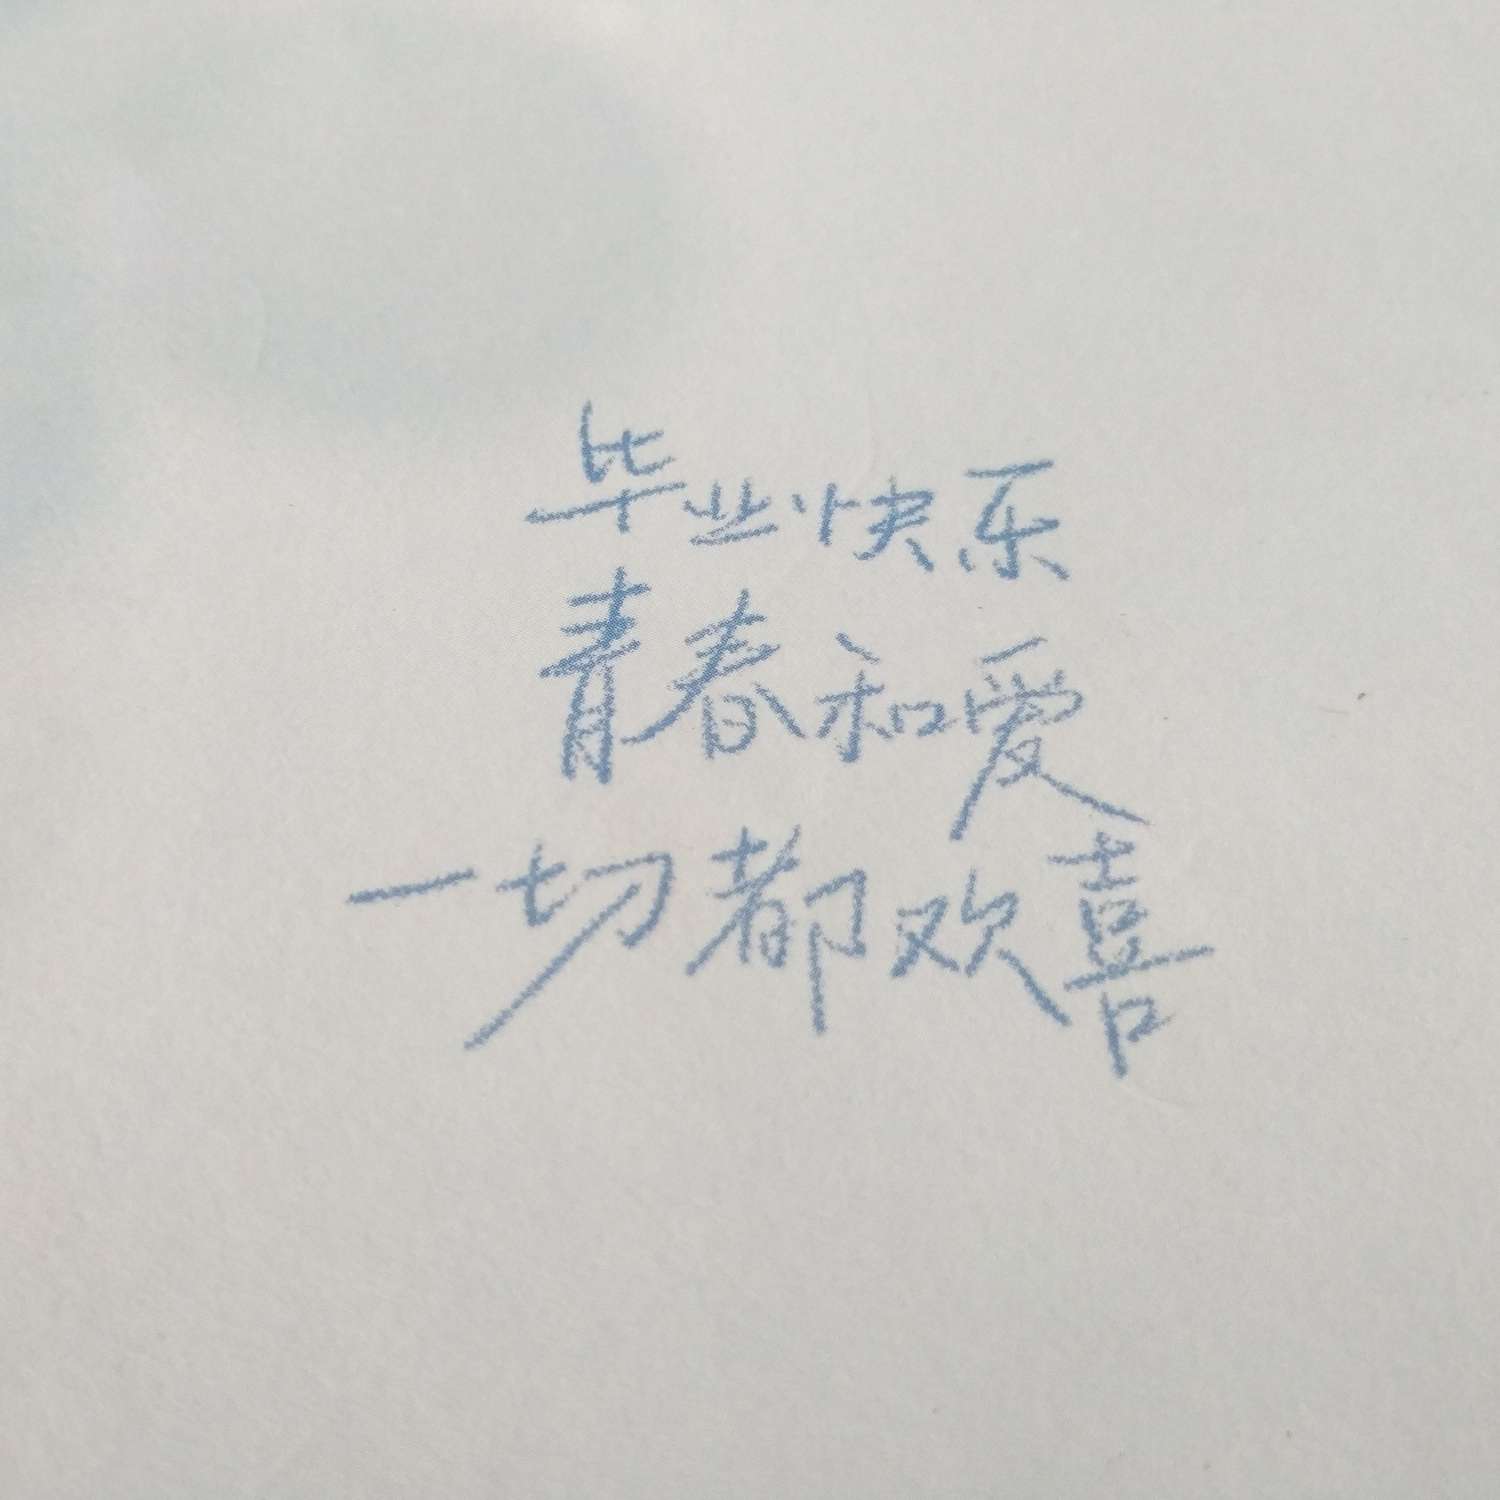 毕业快乐
青春和爱
一切都欢喜